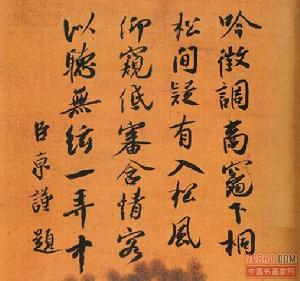 吟徵調商竈下桐
松間疑有入松風
仰窺低審含情客
以聽無絃一弄中
臣京謹題
中国书画家网